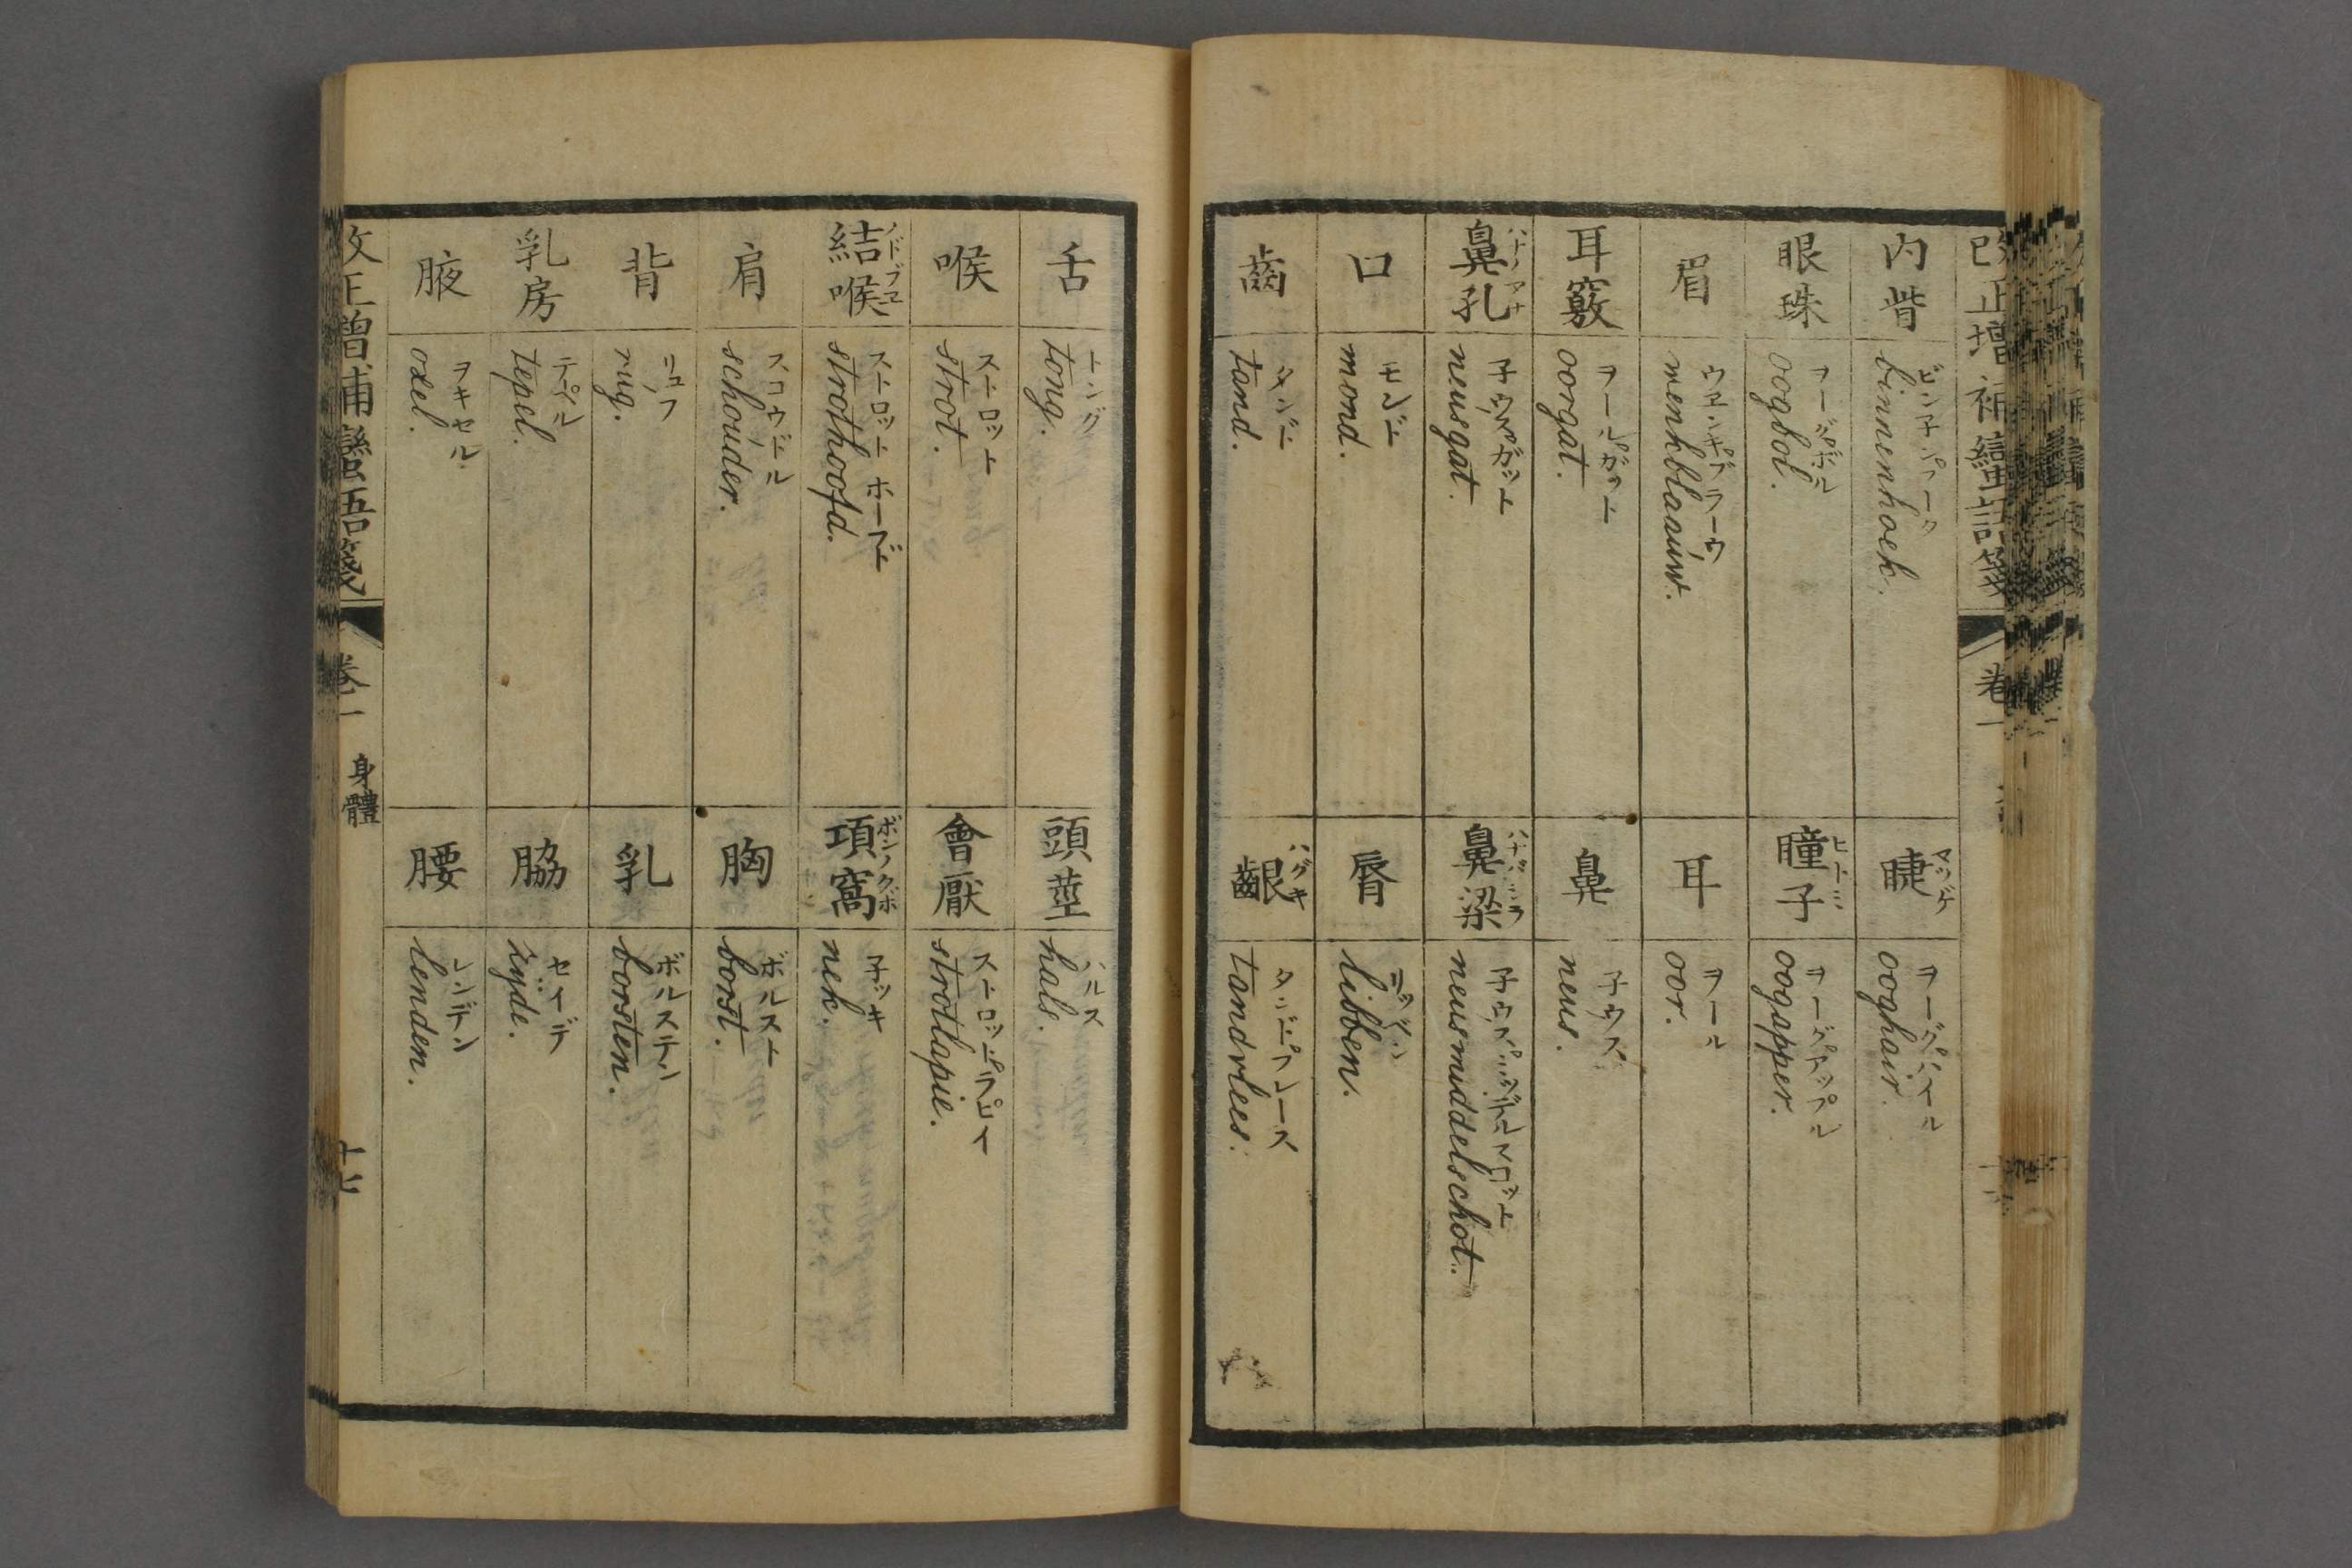 改正増補蠻語箋
卷一
内眥
ビンネンフーク
binnenhoek.
睫
マツゲ
ヲーグハイル
ooghair.
眼珠
ヲーグボル
oogbol.
瞳子
ヒトミ
ヲーグアップル
oogapper.
眉
ウエンキブラーウ
wenkblaauw.
耳
ヲール
oor.
耳竅
ヲールガット
oorgat.
鼻
子ウス
neus.
鼻孔
ハナノアナ
子ウスガット
neusgat.
鼻梁
ハナバシラ
子ウスミッデルスコット
neusmiddelschot.
口
モンド
mond.
脣
libben.
齒
タンド
tand.
齦
ハグキ
タンドフレース
tandvlees.
舌
トング
tong.
頭莖
ハルス
hals.
喉
ストロット
strot.
會厭
ストロットラピイ
strotlapie.
結喉
ノドブエ
ストロットホーブド
strothoofd.
項窩
ボンノクボ
子ッキ
nek.
肩
スコウドル
schouder.
胸
ボルスト
borst.
背
リュフ
rug.
乳
ボルステン
borsten.
乳房
テペル
tepel.
脇
セイデ
zijde.
腋
ヲキセル
oxel.
腰
レンデン
lenden.
改正增補蠻語箋
卷一
身體
十七